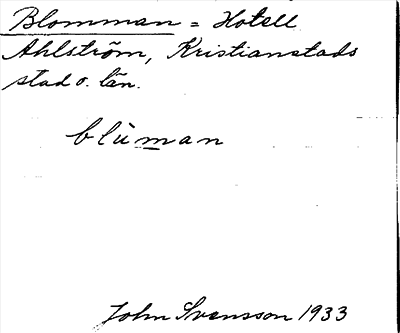 Blomman = Hotell
Ahlström, Kristianstads
stad o. län.
blùman
John Svensson 1933